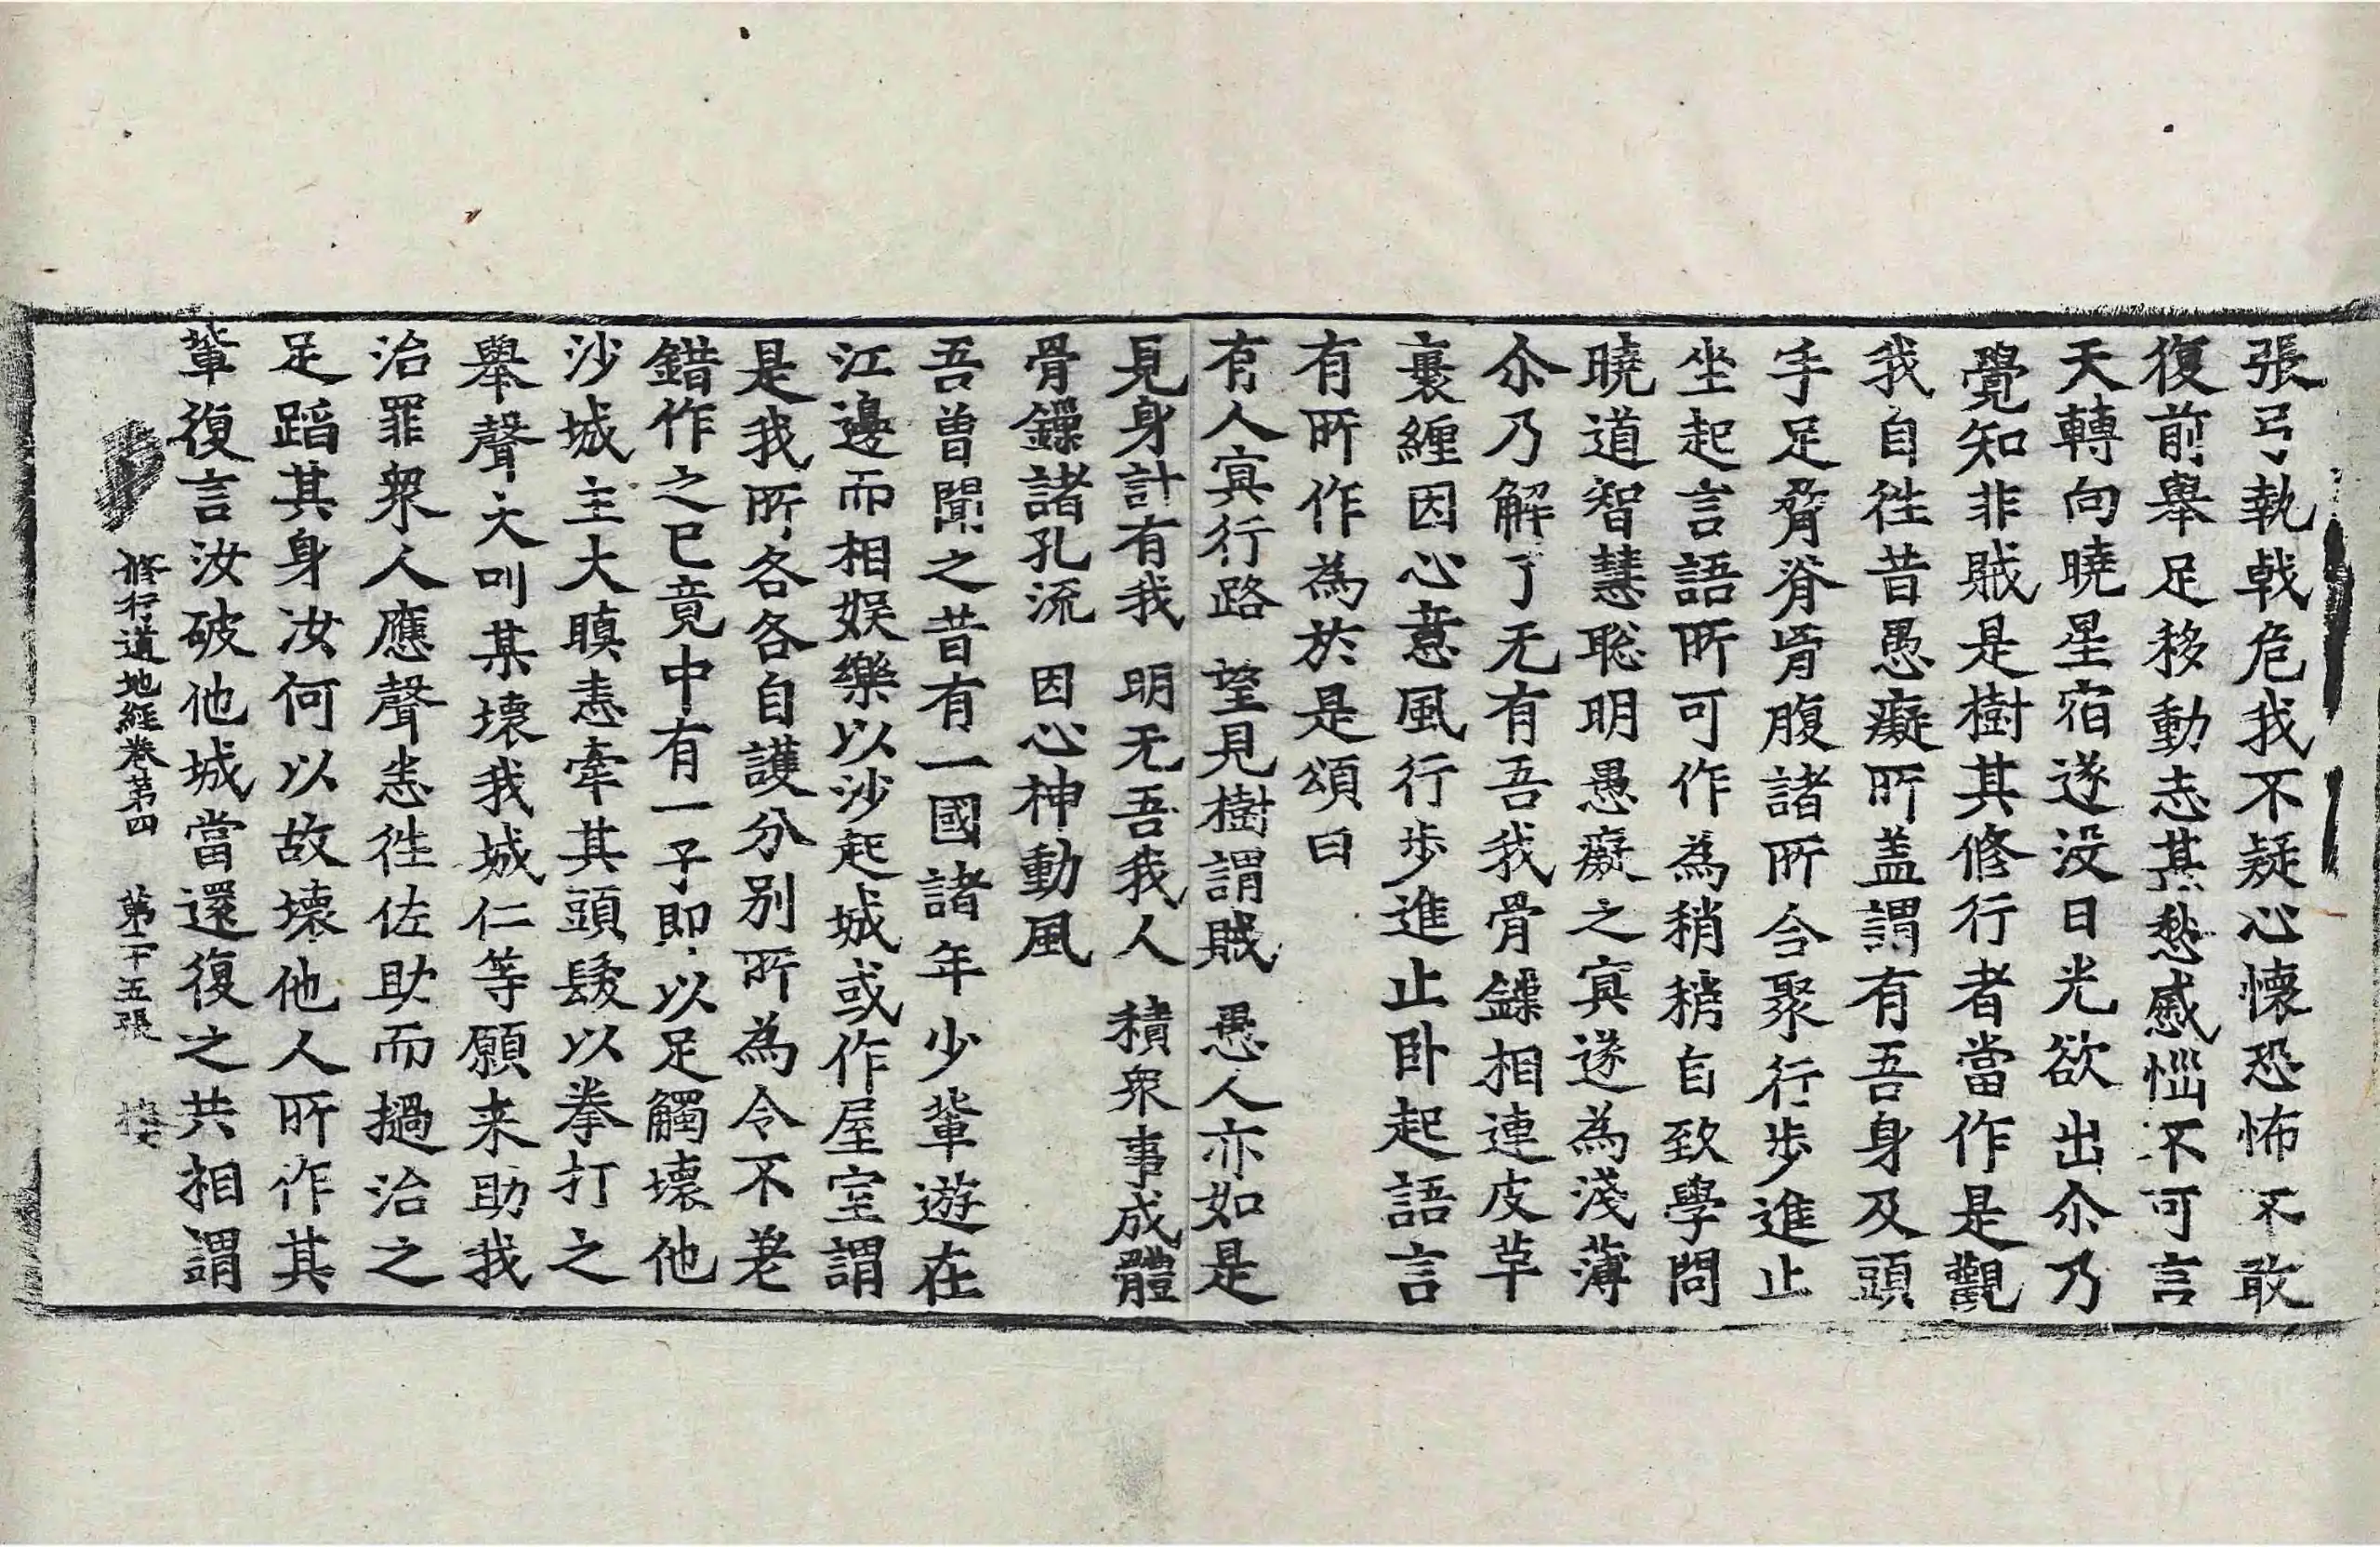 張弓執戟危我不疑心懷恐怖不敢
復前舉足移動志甚愁慼惱不可言
天轉向曉星宿遂沒日光欲出尒乃
覺知非賊是樹其修行者當作是觀
我自徃昔愚癡所盖謂有吾身及頭
手足脅脊𦙄腹諸所合聚行步進止
坐起言語所可作為稍稍自致學問
曉道智慧聡明愚癡之冥遂為淺薄
尒乃解了无有吾我骨鏁相連皮革
裹纏因心意風行步進止卧起語言
有所作為於是頌曰
有人冥行路 望見樹謂賊 愚人亦如是
見身計有我 明无吾我人 積衆事成體
骨鏁諸孔流 因心神動風
吾曽聞之昔有一國諸年少輩遊在
江邊而相娛樂以沙起城或作屋室謂
是我所各各自護分別所為令不差
錯作之已竟中有一子即以足觸壞他
沙城主大瞋恚牽其頭髮以拳打之
舉聲大叫某壞我城仁等願来助我
治罪衆人應聲悉徃佐助而撾治之
足蹈其身汝何以故壞他人所作其
輩復言汝破他城當還復之共相謂
修行道地經卷第四 第十五張